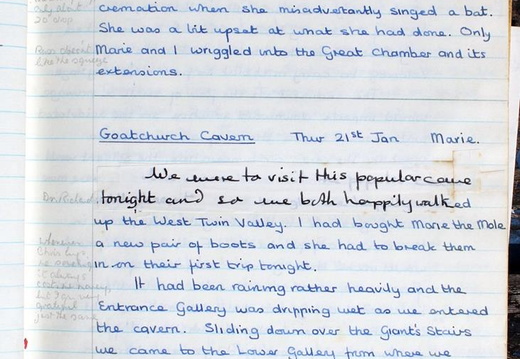 cremation when she misadvertantly singed a bat.
She was a bit upset at what she had done. Only
Marie and I wriggled into the Great Chamber and its
extensions.
Goatchurch Cavern Thur 21st Jan Marie.
We were to visit this popular cave
tonight and so we both happily walked
up the West Twin Valley. I had bought Marie the Mole
a new pair of boots and she had to break them
in on their first trip tonight.
It had been raining rather heavily and the
Entrance Gallery was dripping wet as we entered
the cavern. Sliding down over the Giant's Stairs
we came to the Lower Gallery from where we
only about
20' drop
like the squeeze
whenever
just the same